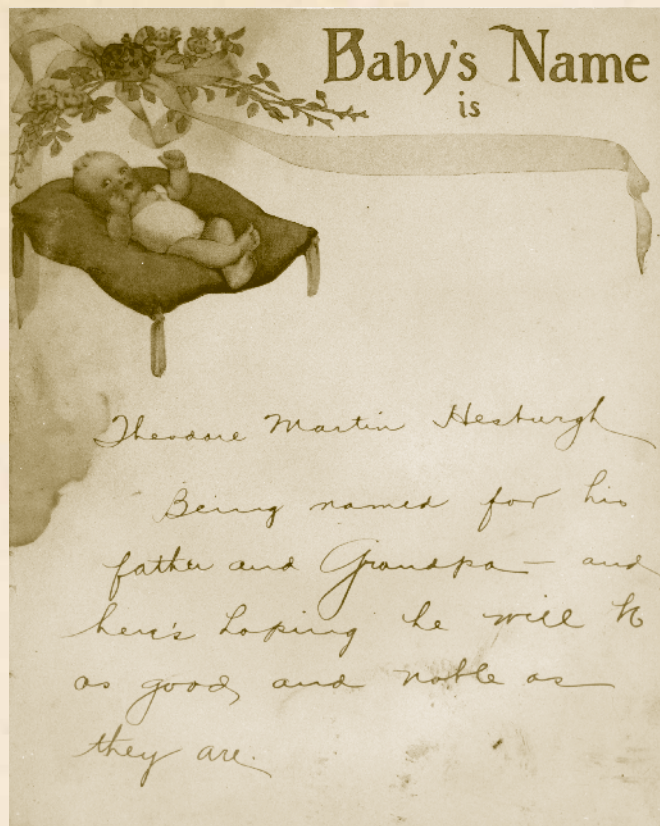 Baby's Name
is
Theodore Martin Hesburgh
Being named for his
father and Grandpa — and
here's hoping he will be
as good and noble as
they are.